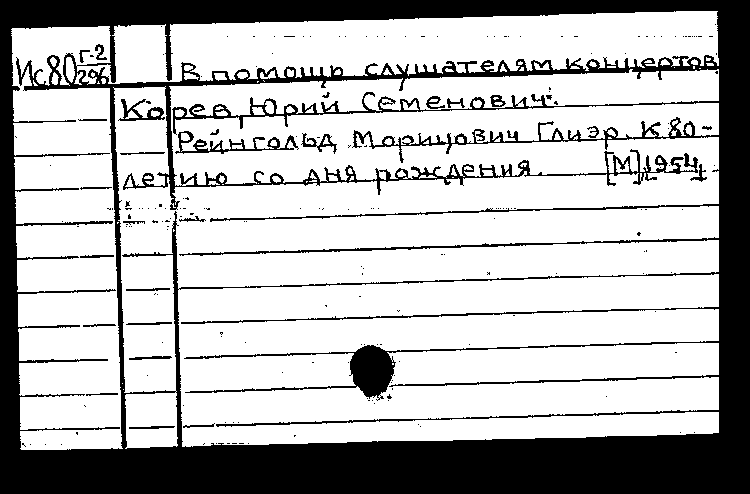 Ис80 Г-2/296 В помощь слушателям концертов
Корев, Юрий Семенович.
Рейнгольд Морицович Глиэр. К 80-
летию со дня рождения. [М], 1954